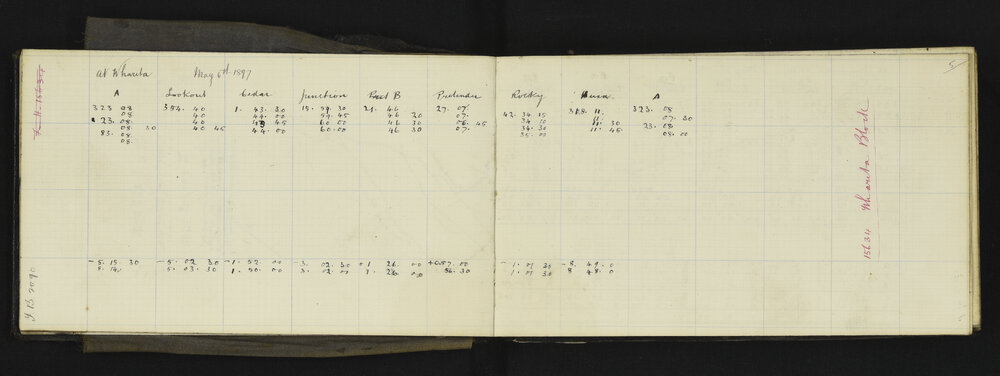 At Wharita May 6th 1897
A Lookout Cedar Junction Peel B Pretender Rocky A
323 08 354. 40 1. 43. 30 15. 59. 30 21. 46 27. 07. 42. 34. 15 318. 11. 323. 08
08 40 44. 00 59. 45 46 20 07. 34 10 11. 07. 30
23. 08. 40 45 60 00 46 30 06. 45 34. 30 11. 30 23. 08.
83. 08. 30 40 45 44. 00 60. 00 46 30 07. 35. 00 11. 45. 08. 00
08.
- 5. 15. 30 - 5. 02 30 - 1. 52. 00 - 3. 02. 30 1 26. 00 +0.57. 00 - 1. 01 30 - 8. 49. 0
5. 14. 5. 03. 30 1. 50. 00 3. 02. 00 1. 26. 00 56. 30 1. 01 30 8 48. 0
F.B 2090
15634 Wharita Block
5
5